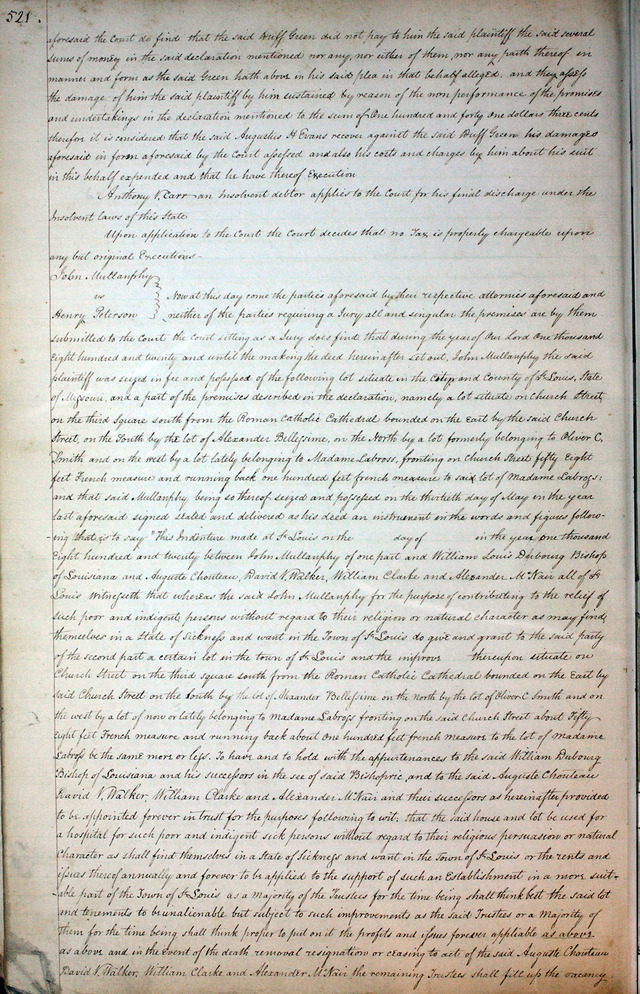 521.
aforesaid the Court do find that the said Huff Green did not pay to him the said plaintiff the said several
sums of money in the said declaration mentioned nor any, nor either of them, nor any parth thereof in
manner and form as the said Green hath above in his said plea in that behalf alleged, and they assess
the damage of him the said plaintiff by him sustained by reason of the non performance of the promises
and undertakings in the declaration mentioned to the sum of One hundred and forty one dollars three cents
therefore it is considered that the said Augustus H Evans recover against the said Huff Green his damages
aforesaid in form aforesaid by the Court assessed and also his costs and charges by him about his suit
in this behalf expended and that he have thereof Execution
Anthony V. Carr an Insolvent debtor applies to the Court for his final discharge under the
Insolvent laws of this State
Upon application to the Court the Court decides that no Tax is properly chargeable upon
any but original Executions-
John Mullanphy
vs
Henry Peterson
Now at this day come the parties aforesaid by their respective attornies aforesaid and
neither of the parties requiring a Jury all and singular the premises are by them
submitted to the Court the Court sitting as a Jury does find that during the year of Our Lord One thousand
Eight hundred and twenty and until the making the deed hereinafter set out, John Mullanphy the said
plaintiff was seized in fee and possessed of the following lot situate in the City and County of St Louis, State
of Missouri, and a part of the premises described in the declaration, namely a lot situate on Church Street,
on the third Square south from the Roman Catholic Cathedral bounded on the East by the said Church
Street, on the South by the lot of Alexander Bellessime, on the North by a lot formerly belonging to Oliver C.
Smith and on the west by a lot lately belonging to Madame Labross, fronting on Church Street fifty Eight
feet French measure and running back one hundred feet french measure to said lot of Madame Labross:
and that said Mullanphy being so thereof seized and possessed on the thirtieth day of May in the year
last aforesaid signed sealed and delivered as his deed an instrument in the words and figures follow-
ing that is to say "This Indenture made at St Louis on the day of in the year one thousand
Eight hundred and twenty between John Mullanphy of one part and William Louis Dubourg Bishop
of Louisiana and Auguste Chouteau, David V. Walker, William Clarke and Alexander McNair all of St
Louis Witnesseth that whereas the said John Mullanphy for the purpose of contributing to the relief of
such poor and indigent persons without regard to their religion or natural character as may find
themselves in a State of Sickness and want in the Town of St Louis do give and grant to the said party
of the second part a certain lot in the town of St Louis and the improv thereupon situate on
Church Street on the third square south from the Roman Catholic Cathedral bounded on the East by
said Church Street on the South by the lot of Alexander Bellessime on the north by the lot of Oliver C. Smith and on
the west by a lot of now or lately belonging to Madame Labross fronting on the said Church Street about Fifty
Eight feet French measure and running back about One hundred feet french measure to the lot of Madame
Labross be the same more or less. To have and to hold with the appurtenances to the said William Dubourg
Bishop of Louisiana and his successors in the see of said Bishopric, and to the said Auguste Chouteau
David V. Walker, William Clarke and Alexander McNair and their successors as hereinafter provided
to be appointed forever in trust for the purposes following to wit, that the said house and lot be used for
a hospital for such poor and indigent sick persons without regard to their religious persuasion or natural
Character as shall find themselves in a State of Sickness and want in the Town of St Louis or the rents and
issues thereof annually and forever to be applied to the support of such an Establishment in a more suit-
able part of the Town of St Louis as a Majority of the Trustees for the time being shall think best the said lot
and tenements to be unalienable but subject to such improvements as the said Trustees or a Majority of
them for the time being shall think proper to put on it the profits and issues forever applicable as above
as above and in the Event of the death removal resignation or ceasing to act of the said Auguste Chouteau
David V. Walker, William Clarke and Alexander McNair the remaining Trustees shall fill up the vacancy